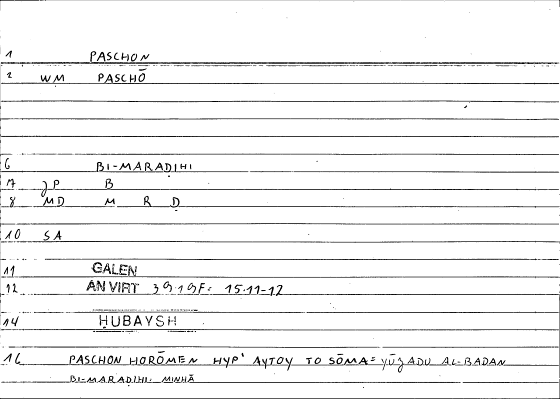 1 PASCHON
2 WM PASCHŌ
6 BI-MARADIHI
7 JP B
8 MD M R D
10 SA
11 GALEN
12 AN VIRT 39.19F: 15.11-12
14 ḤUBAYSH
16 PASCHON HORŌMEN HYP' AYTOY TO SŌMA= YŪJADU AL-BADAN
BI-MARADIHI. MINHĀ